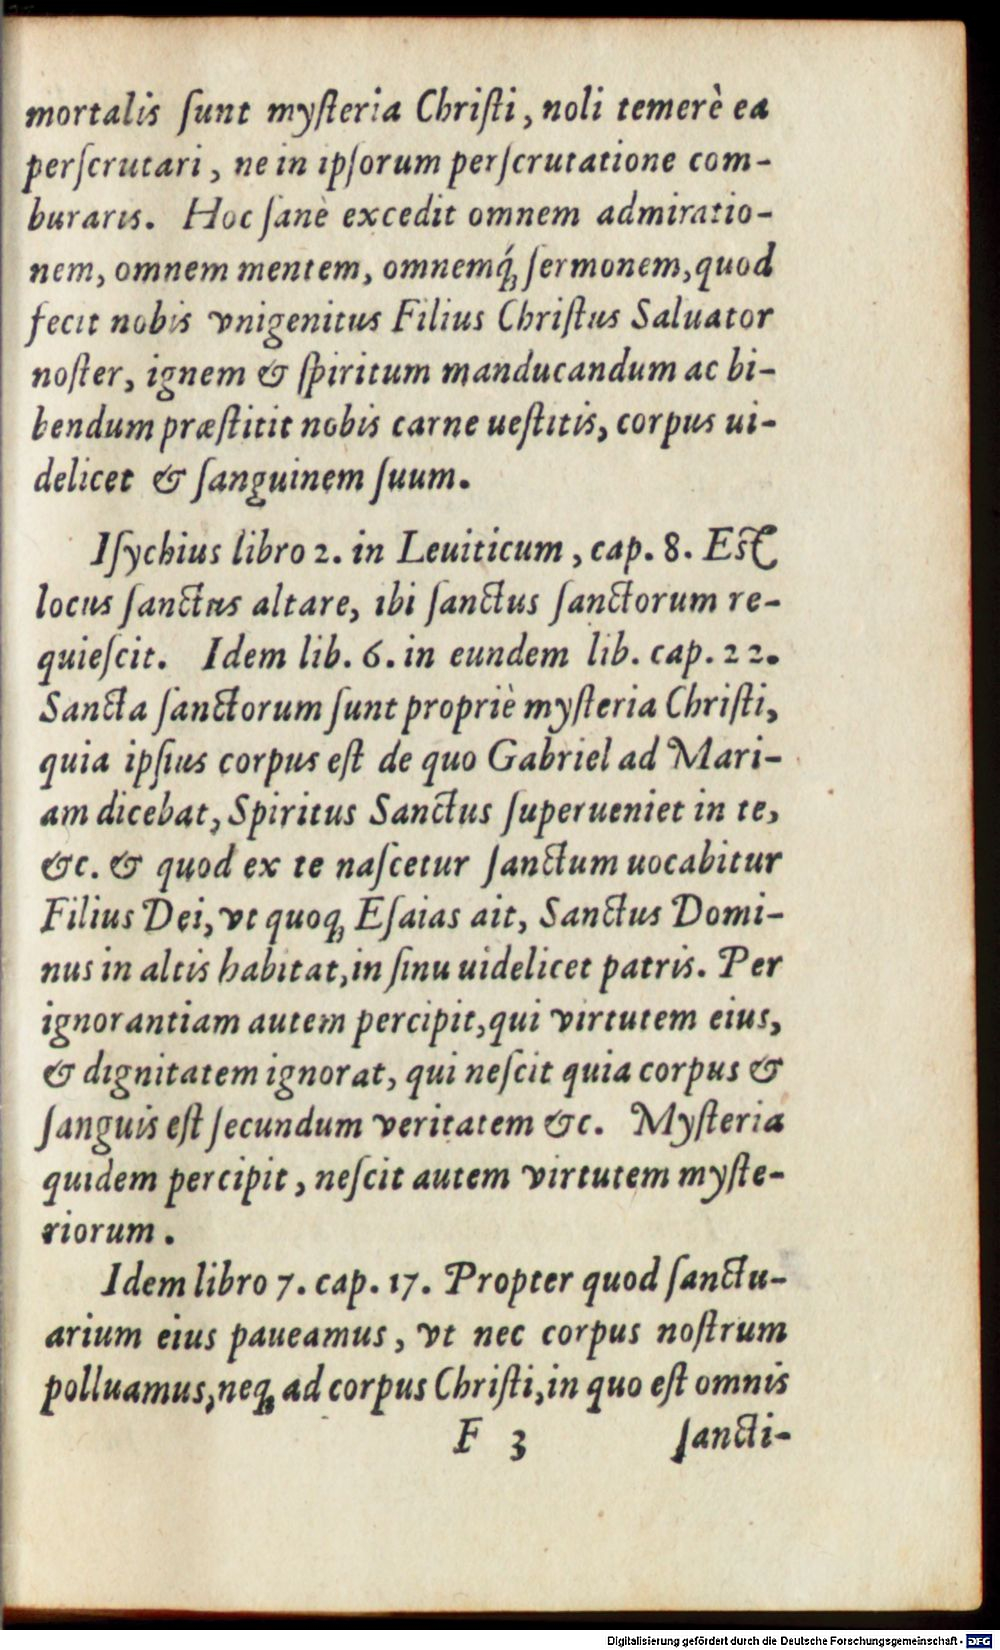 mortalis ſunt myſteria Chriſti, noli temerè ea
perſcrutari, ne in ipſorum perſcrutatione com-
buraris. Hoc ſanè excedit omnem admiratio-
nem, omnem mentem, omnemq́; ſermonem, quod
fecit nobis vnigenitus Filius Chriſtus Saluator
noſter, ignem & ſpiritum manducandum ac bi-
bendum præſtitit nobis carne ueſtitis, corpus ui-
delicet & ſanguinem ſuum.
Iſychius libro 2. in Leuiticum, cap. 8. Est
locus ſanctus altare, ibi ſanctus ſanctorum re-
quieſcit. Idem lib. 6. in eundem lib. cap. 22.
Sancta ſanctorum ſunt propriè myſteria Chriſti,
quia ipſius corpus eſt de quo Gabriel ad Mari-
am dicebat, Spiritus Sanctus ſuperueniet in te,
&c. & quod ex te naſcetur ſanctum uocabitur
Filius Dei, vt quoq; Eſaias ait, Sanctus Domi-
nus in altis habitat, in ſinu uidelicet patris. Per
ignorantiam autem percipit, qui virtutem eius,
& dignitatem ignorat, qui neſcit quia corpus &
ſanguis eſt ſecundum veritatem &c. Myſteria
quidem percipit, neſcit autem virtutem myſte-
riorum.
Idem libro 7. cap. 17. Propter quod ſanctu-
arium eius paueamus, vt nec corpus noſtrum
polluamus, neq; ad corpus Chriſti, in quo eſt omnis
F 3 ſancti-
Digitalisierung gefördert durch die Deutsche Forschungsgemeinschaft - DFG